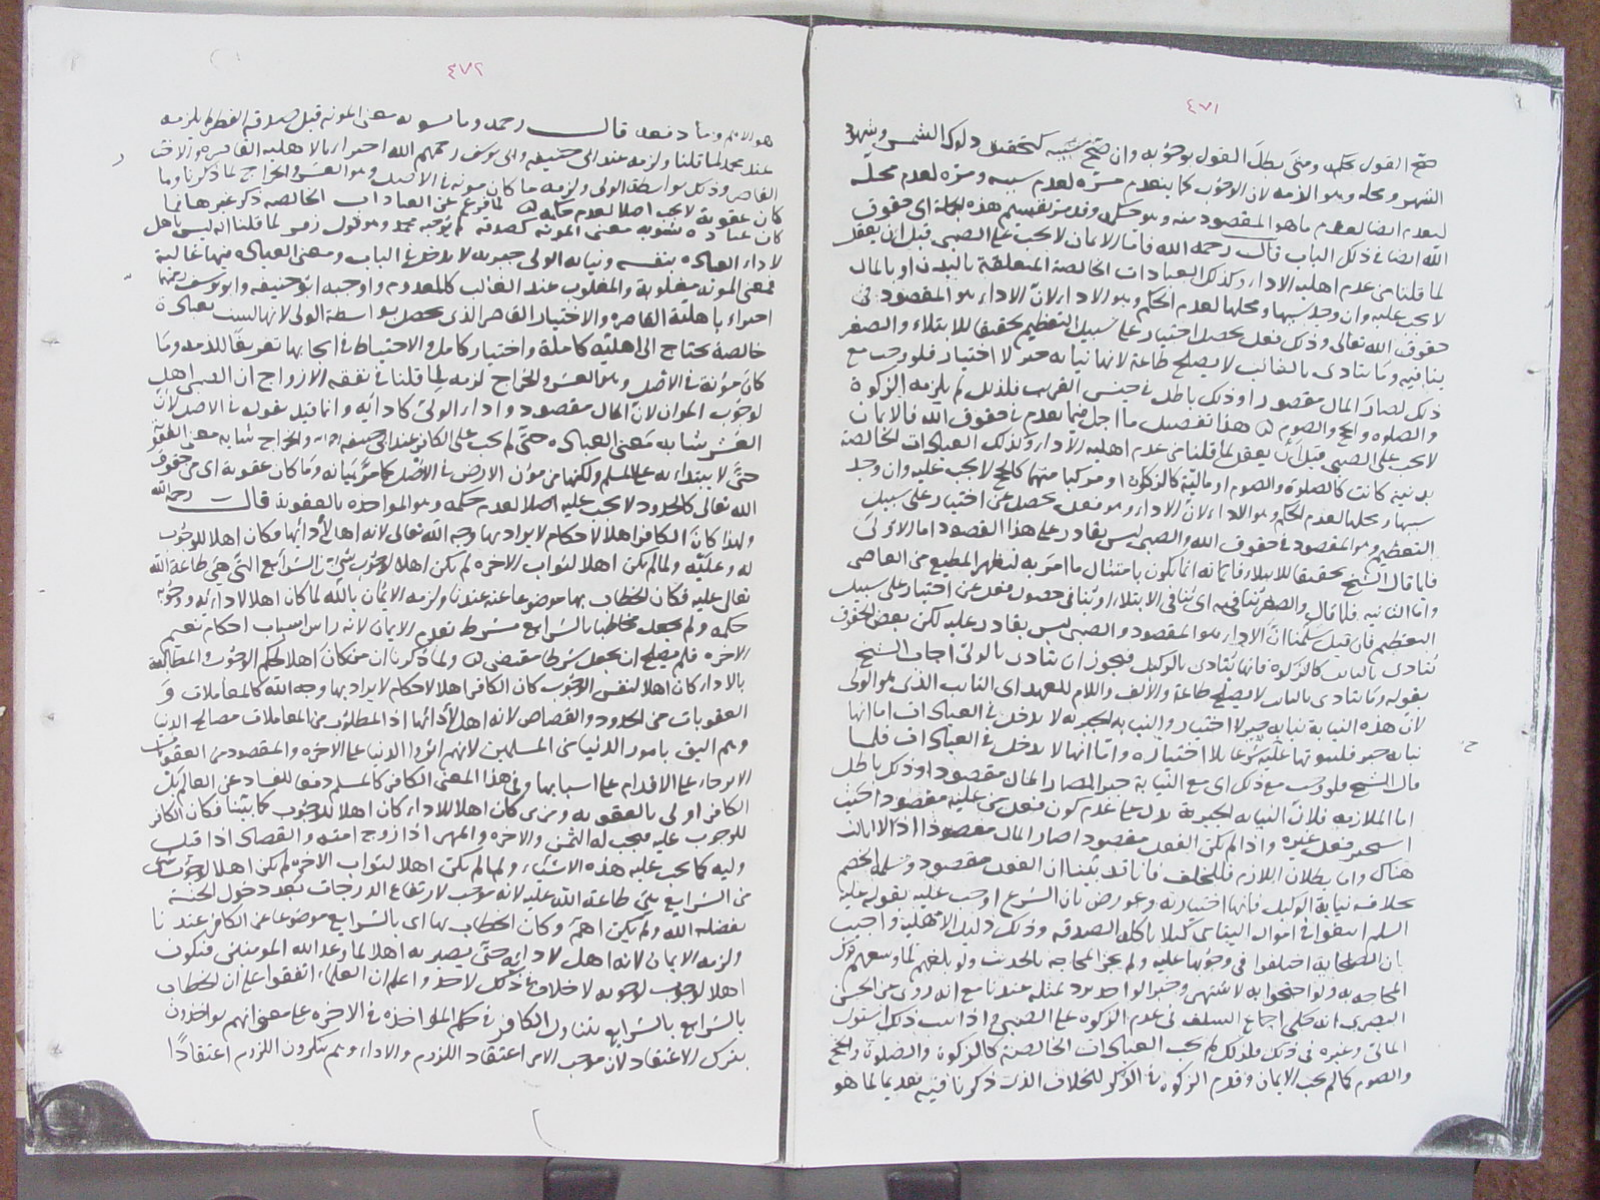 ٤٧١
صح القول بحكمه ومتى بطل القول بوجوبه وان صح سببه كتحقق دلوك الشمس وشهود
الشهر ومحله وهو الذمة لان الوجوب كما ينعدم مرة لعدم سببه ومرة لعدم محله
ينعدم ايضا لعدم ما هو المقصود منه وهو حكمه وقد مر تقسيم هذه الجملة اى حقوق
الله ايضا فى ذلك الباب قال رحمه الله فاما الايمان لا يجب على الصبى قبل ان يعقل
لما قلنا من عدم اهلية الاداء وكذلك العبادات الخالصة المتعلقة بالبدن او بالمال
لا يجب عليه وان وجد سببها ومحلها لعدم الحكم وهو الاداء لان الاداء هو المقصود فى
حقوق الله تعالى وذلك فعل يحصل عن اختيار على سبيل التعظيم تحقيقا للابتلاء والصغر
ينافيه وما يتادى بالنائب لا يصلح طاعة لانها نيابة جبر لا اختيار فلو وجب مع
ذلك لصار المال مقصودا وذلك باطل فى جنس القرب فلذلك لم يلزمه الزكوة
والصلوة والحج والصوم هذا تفصيل ما اجمل فيما تقدم فى حقوق الله فالايمان
لا يجب على الصبى قبل ان يعقل لما قلنا من عدم اهلية الاداء وكذلك العبادات الخالصة
بدنية كانت كالصلوة والصوم او مالية كالزكوة او مركبا منهما كالحج لا يجب عليه وان وجد
سببها ومحلها لعدم الحكم وهو الاداء لان الاداء هو فعل يحصل عن اختيار على سبيل
التعظيم هو المقصود فى حقوق الله والصبى ليس بقادر على هذا المقصود اما الاولى
فلما قال الشيخ تحقيقا للابتلاء فانه انما يكون بامتثال ما امر به ليظهر المطيع من العاصى
واما الثانية فلما قال والصغر ينافيه اى ينافى الابتلاء او ينافى حصول فعل عن اختيار على سبيل
التعظيم فان قيل سلمنا ان الاداء هو المقصود والصبى ليس بقادر عليه لكن بعض الحقوق
يتادى بالنائب كالزكوة فانها تتادى بالوكيل فيجوز ان يتادى بالولى اجاب الشيخ
بقوله وما يتادى بالنائب لا يصلح طاعة والالف واللام للعهد اى النائب الذى هو الولى
لان هذه النيابة نيابة جبر لا اختيار والنيابة الجبرية لا يدخل فى العبادات اما انها
نيابة جبر فلثبوتها عليه شرعا بلا اختياره واما انها لا يدخل فى العبادات فلما
قال الشيخ فلو وجب مع ذلك اى مع النيابة جبرا لصار المال مقصودا وذلك باطل
اما الملازمة فلان النيابة الجبرية يدل على عدم كون فعل من عليه مقصودا حيث
فعل غيره واذا لم يكن الفعل مقصودا صار المال مقصودا اذ لا ثالث
هناك واما بطلان اللازم فللخلف فانا قد بينا ان الفعل مقصود وسلمه الخصم
بخلاف نيابة الوكيل فانها اختيارية وعورض بان الشرع اوجب عليه بقوله عليه
السلام ابتغوا فى اموال اليتامى كيلا ياكلها الصدقة وذلك دليل الاهلية واجيب
بان الصحابة اختلفوا فى وجوبها عليه ولم يجز المحاجة بالحديث ولو بلغهم لما وسعهم ترك
المحاجة به ولو احتجوا به لاشتهر وخبر الواحد يرد بمثله عندنا مع انه روى عن الحسن
البصرى انه حكى اجماع السلف فى عدم الزكوة على الصبى واذا ثبت ذلك استوى
المالى وغيره فى ذلك فلذلك لم يجب العبادات الخالصة كالزكوة والصلوة والحج
والصوم كما لم يجب الايمان وقدم الزكوة فى الذكر للخلاف الذى ذكرنا فيه تقديما لما هو
٤٧٢
هو الاهم وما دفعه قال رحمه وما يشوبه معنى المونة قبل صدقة الفطر لم يلزمه
عند محمد لما قلنا ولزمه عند ابى حنيفة وابى يوسف رحمهم الله اجتزاء بالاهلية القاصرة والاختيار
القاصر وذلك بواسطة الولى ولزمه ما كان مونة فى الاصل وهو العشر والخراج لما ذكرنا وما
كان عقوبة لا يجب اصلا لعدم حكمه لما فرغ عن العبادات الخالصة ذكر غيرها فما
كان عبادة يشوبه معنى المونة كصدقة لم يوجبه محمد وهو قول زفر لما قلنا انه ليس باهل
لاداء العبادة بنفسه ونيابة الولى جبرية لا يدخل فى الباب ومعنى العبادة فيها غالبة
فمعنى المونة مغلوبة والمغلوب عند الغالب كالمعدوم واوجبه ابو حنيفة وابو يوسف رحمهما
اجتزاء باهلية القاصرة والاختيار القاصر الذى يحصل بواسطة الولى لانها ليست بعبادة
خالصة يحتاج الى اهلية كاملة واختيار كامل والاحتياط فى ايجابها تفريغا للذمة وما
كان مؤنة فى الاصل وهو العشر والخراج لزمه لما قلنا فى نفقة الازواج ان الصبى اهل
لوجوب المؤن لان المال مقصود واداء الولى كادائه وانما قيد بقوله فى الاصل لان
العشر يشابه معنى العبادة حتى لم يجب على الكافر عند ابى حنيفة والخراج يشابه معنى العقوبة
حتى لا يبتداء به على المسلم ولكنهما من مؤن الارض فى الاصل كما مر بيانه وما كان عقوبة اى من حقوق
الله تعالى كالحدود لا يجب عليه اصلا لعدم حكمه وهو المواخذة بالعقوبة قال رحمه الله
ولهذا كان الكافر اهلا لاحكام لا يراد بها وجه الله تعالى لانه اهل لادائها فكان اهلا للوجوب
له وعليه ولما لم يكن اهلا لثواب الاخرة لم يكن اهلا لوجوب شىء من الشرايع التى هى طاعة الله
تعالى عليه فكان الخطاب بها موضوعا عنه عندنا ولزمه الايمان بالله لما كان اهلا لادائه ووجوب
حكمه ولم يجعل مخاطبا بالشرايع بشرط تقديم الايمان لانه راس اسباب احكام نعيم
الاخرة فلم يصلح ان يجعل شرطا مقتضى ولما ذكرنا ان من كان اهلا لحكم الوجوب والمطالبة
بالاداء كان اهلا لنفس الوجوب كان الكافر اهلا لاحكام لا يراد بها وجه الله كالمعاملات و
العقوبات من الحدود والقصاص لانه اهل لادائها اذ المطلوب من المعاملات مصالح الدنيا
وهم اليق بامور الدنيا من المسلمين لانهم اثروا الدنيا على الاخرة والمقصود من العقوبات
الانزجار على الاقدام على اسبابها وفى هذا المعنى الكافر كالمسلم دفعا للفساد عن العالم بل
الكافر اولى بالعقوبة ومن كان اهلا للاداء كان اهلا للوجوب كما بينا فكان الكافر
للوجوب عليه فيجب له الثمن والاجرة والمهر اذا زوج امته والقصاص اذا قتل
وليه كما يجب عليه هذه الاشياء ولما لم يكن اهلا لثواب الاخرة لم يكن اهلا لوجوب شىء
من الشرايع هى طاعة الله عليه لانه موجب لارتفاع الدرجات بعد دخول الجنة
بفضله الله ولم يكن اهله وكان الخطاب بها اى بالشرايع موضوعا عن الكافر عندنا
ولزمه الايمان لانه اهل لادائه حتى يصير به اهلا لما وعد الله المومنين فيكون
اهلا لوجوب لوجوبه لا خلاف فى ذلك لاحد واعلم ان العلماء اتفقوا على ان الخطاب
بالشرايع بالشرايع يتناول الكافر فى حكم المواخذة فى الاخرة على معنى انهم يواخذون
بترك الاعتقاد لان موجب الامر اعتقاد اللزوم والاداء وهم ينكرون اللزوم اعتقادا